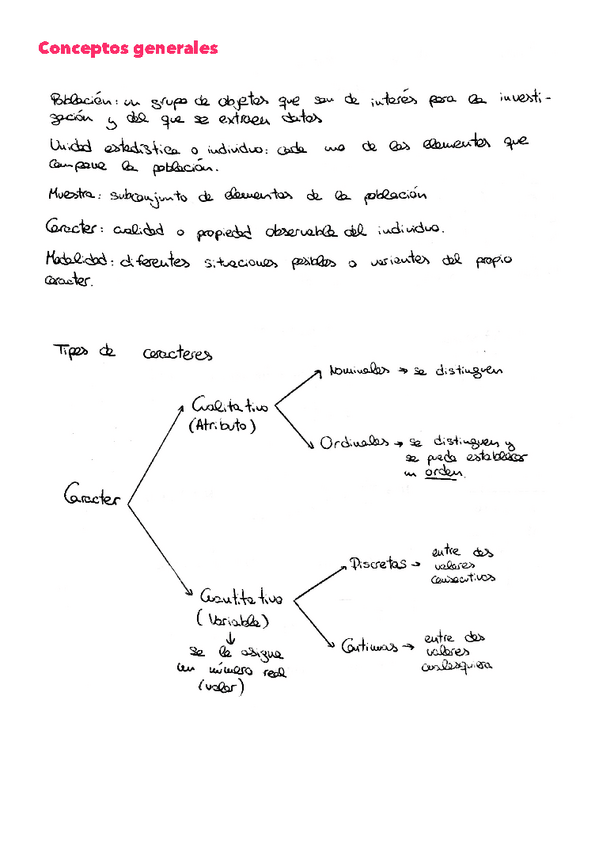 Conceptos generales
Población: un grupo de objetos que son de interés para la investi-
gación y del que se extraen datos
Unidad estadística o individuo: cada uno de los elementos que
compone la población.
Muestra: subconjunto de elementos de la población
Caracter: cualidad o propiedad observable del individuo.
Modalidad: diferentes situaciones posibles o varientes del propio
caracter.
Tipos de caracteres
Nominales → se distinguen
Cualitativo
(Atributo)
Ordinales → se distinguen y
se puede establecer
un orden.
Caracter
Discretas → entre dos
valores
consecutivos
Cuantitativo
(Variable)
↓
se le asigna
un número real
(valor)
Continuas → entre dos
valores
cualesquiera